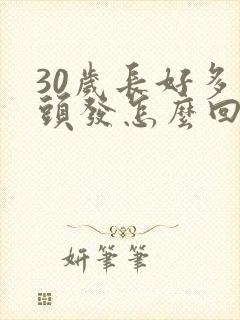 30歲長好多
頭發怎麼回
妍筆筆